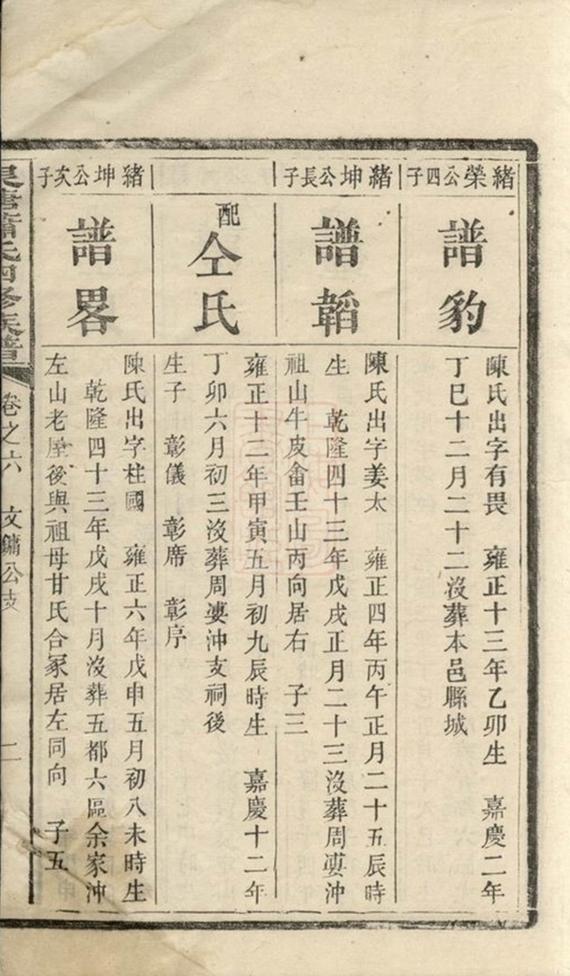 緒榮公四子
譜豹
陳氏出字有畏　雍正十三年乙卯生　嘉慶二年
丁巳十二月二十二沒葬本邑縣城
緒坤公長子
譜韜
陳氏出字姜太　雍正四年丙午正月二十五辰時
生　乾隆四十三年戊戌正月二十三沒葬周婆沖
祖山牛皮侖壬山丙向居右　子三
配仝氏
雍正十二年甲寅五月初九辰時生　嘉慶十二年
丁卯六月初三沒葬周婆沖支祠後
生子　彰儀　彰席　彰序
緒坤公次子
譜畧
陳氏出字柱國　雍正六年戊申五月初八未時生
乾隆四十三年戊戌十月沒葬五都六區余家沖
左山老屋後與祖母甘氏合冢居左同向　子五
蕭氏四修族譜
卷之六　文鏞公支　二